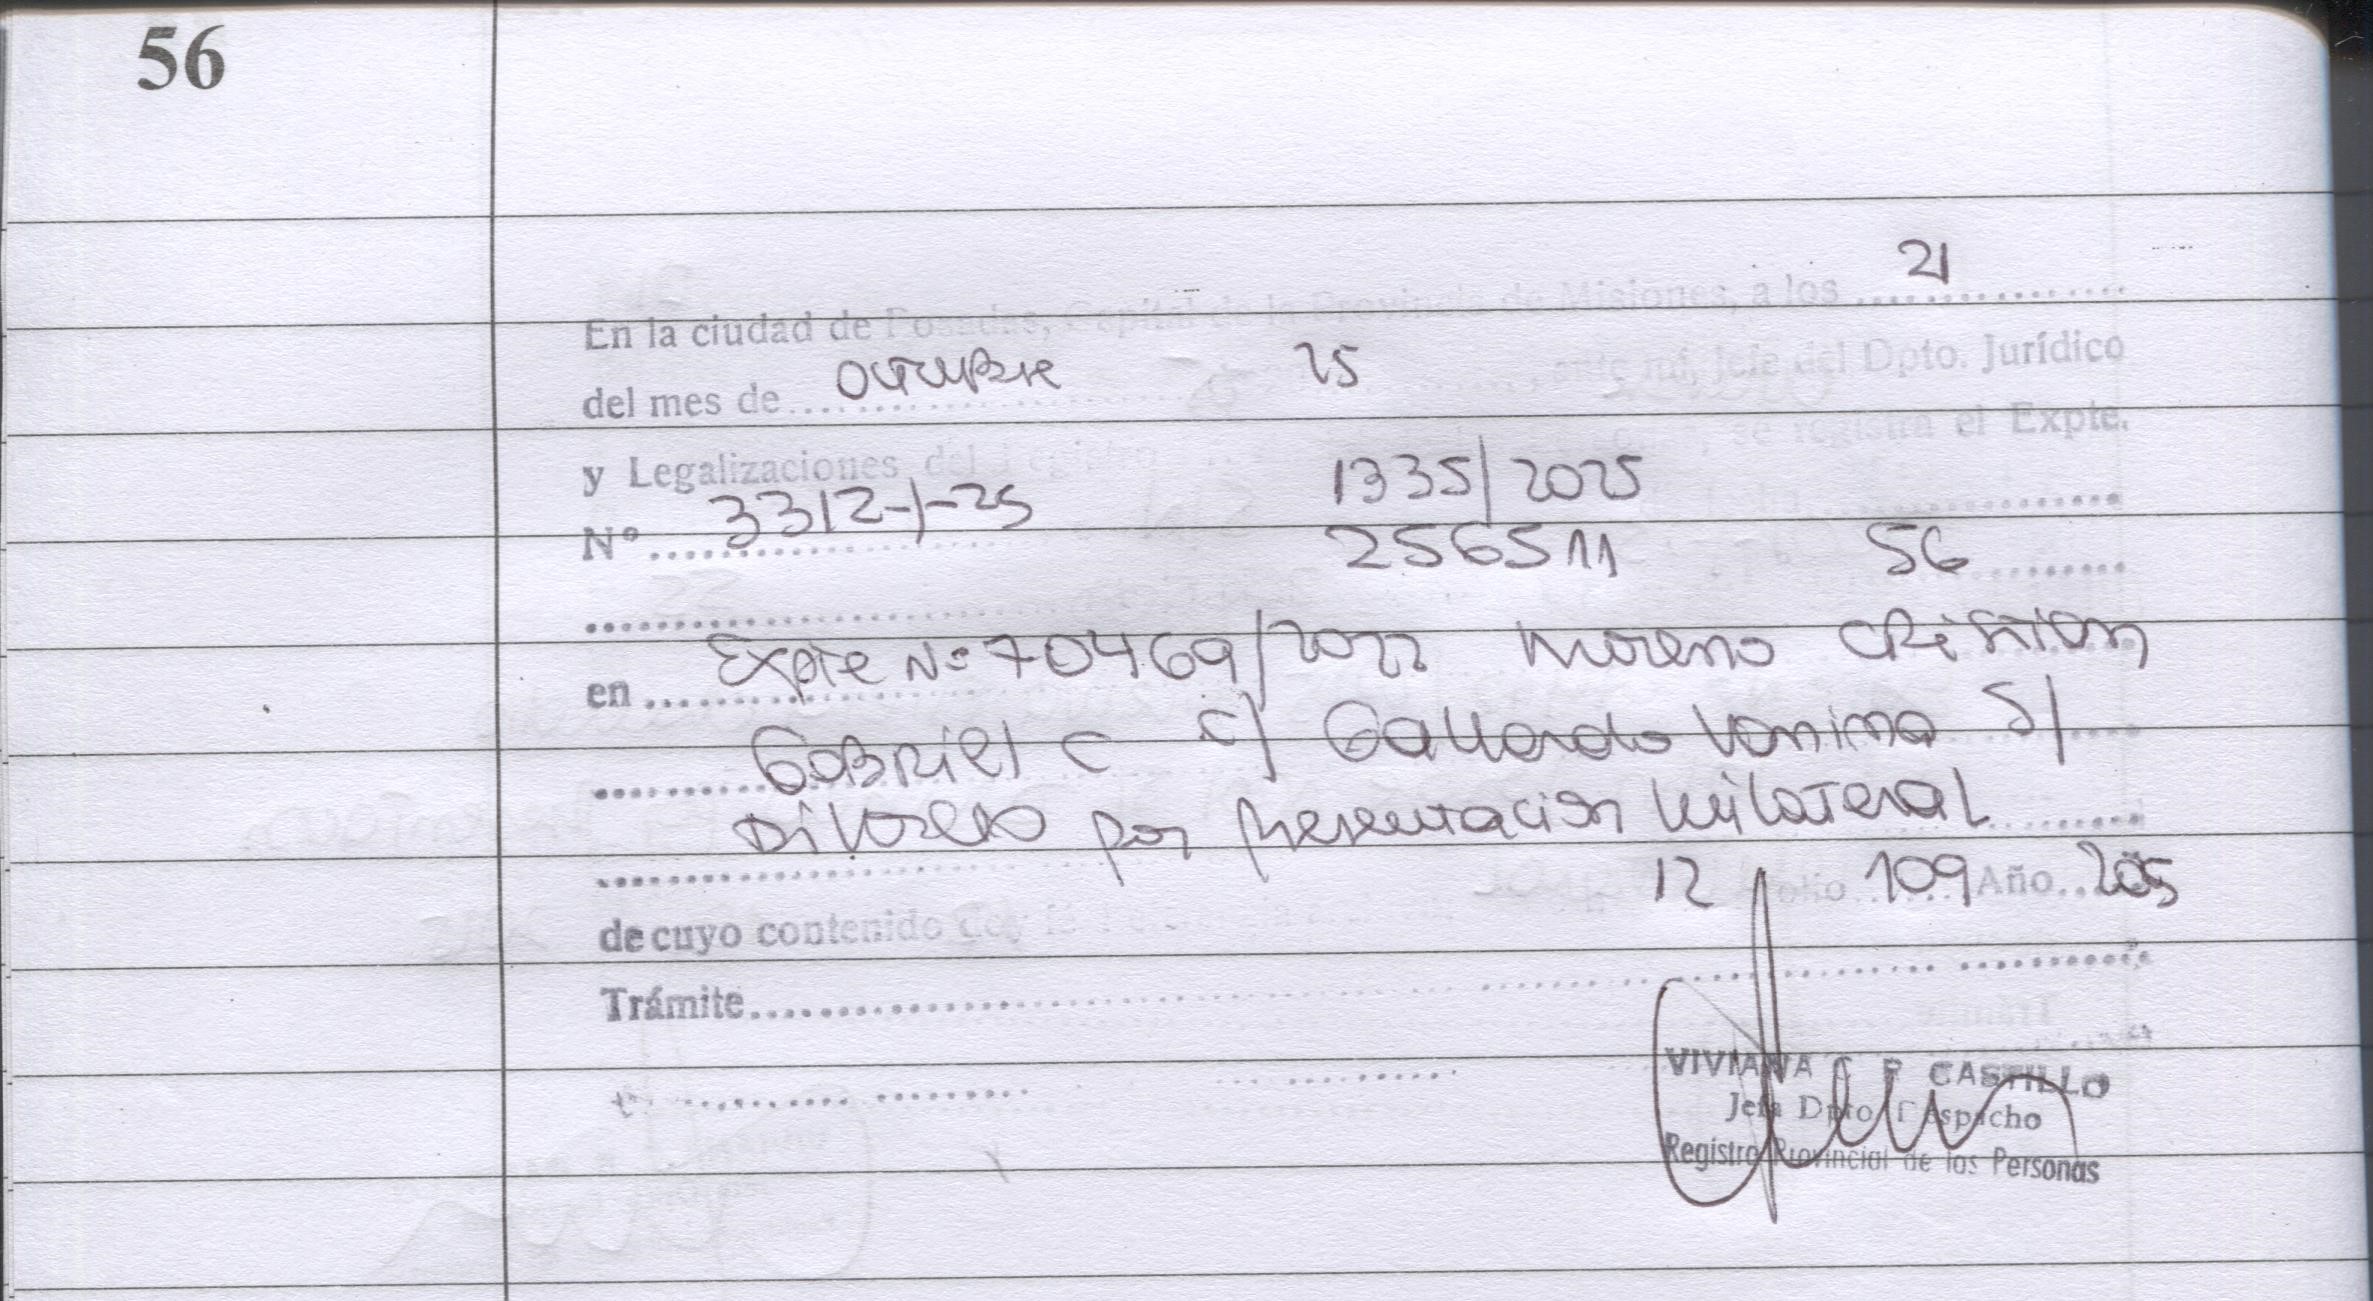 56
21
En la ciudad de Posadas, Capital de la Provincia de Misiones, a los ................
del mes de ........ octubre 25 ........, ante mí, Jefe del Dpto. Jurídico
y Legalizaciones del Registro 1335/2025 se registra el Expte.
Nº ........ 3312-1-25 256511 56 ........
en ........ Expte Nº 70469/2022 Moreno Cristian
Gabriel C c/ Gallardo Vanina S/
Divorcio por presentación Unilateral
de cuyo contenido doy fe 12 Folio 109 Año 205
Trámite ................
VIVIANA C P CASTILLO
Jefa Dpto Despacho
Registro Provincial de las Personas